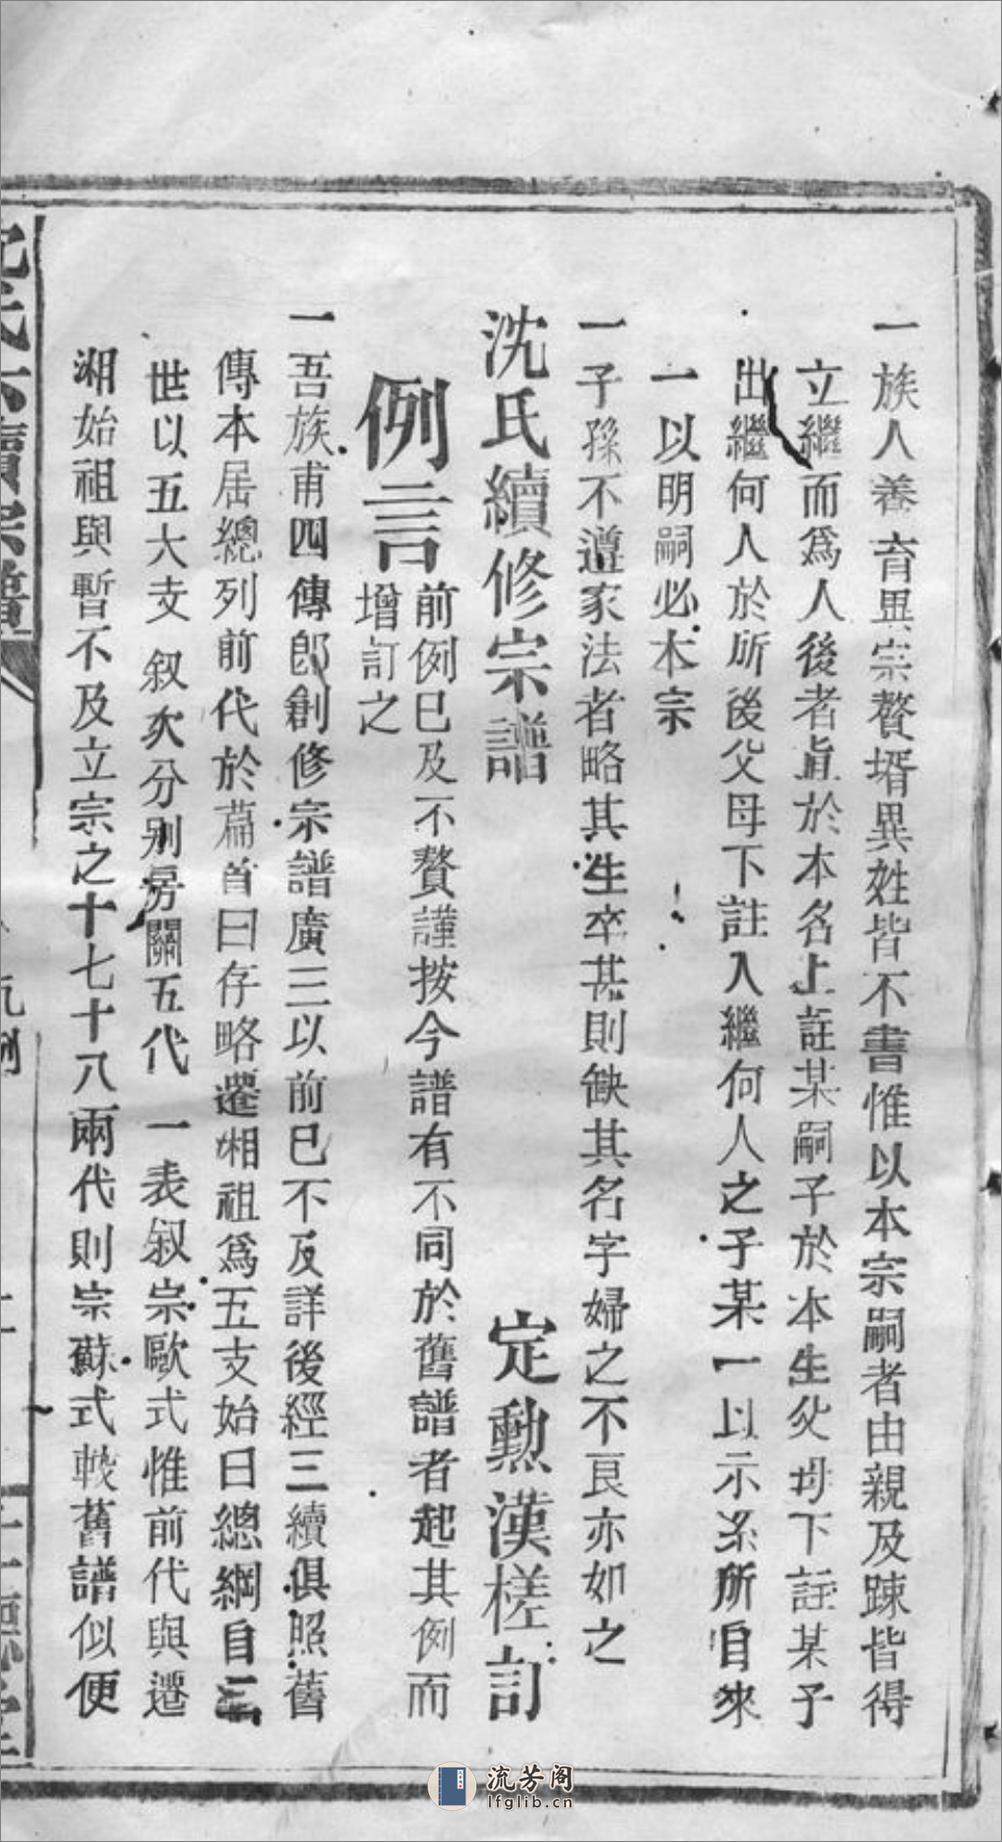 一族人養育異宗贅壻異姓皆不書惟以本宗嗣者由親及踈皆得
立繼而爲人後者直於本名上註某嗣子於本生父母下註某子
出繼何人於所後父母下註入繼何人之子某一以示系所自來
一以明嗣必本宗
一子孫不遵家法者略其生卒甚則缺其名字婦之不良亦如之
沈氏續修宗譜 定勲漢槎訂
例言
前例已及不贅謹按今譜有不同於舊譜者起其例而
增訂之
一吾族甫四傳郎創修宗譜廣三以前已不及詳後經三續俱照舊
傳本居總列前代於篇首曰存略遷湘祖爲五支始曰總綱自三
世以五大支叙次分别房關五代一表叙宗歐式惟前代與遷
湘始祖與暫不及立宗之十七十八兩代則宗蘇式較舊譜似便
沈氏六續宗譜
凡例
流芳阁
lfglib.cn